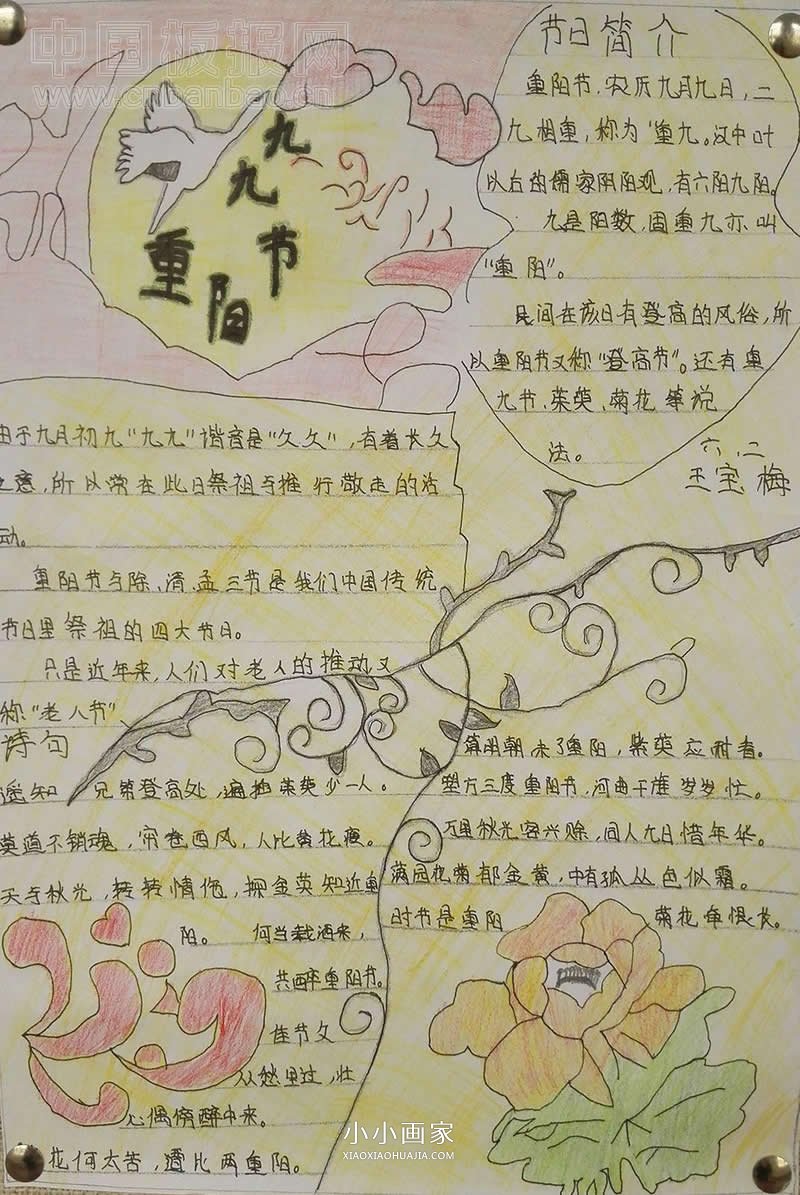 中国板报网
www.cnbanbao.cn
九九
重阳节
节日简介
重阳节，农历九月九日，二
九相重，称为"重九。汉中叶
以后的儒家阴阳观，有六阴九阳。
九是阳数，固重九亦叫
"重阳"。
民间在该日有登高的风俗，所
以重阳节又称"登高节"。还有重
九节、茱萸、菊花等说
法。
六、二
王宝梅
由于九月初九"九九"谐音是"久久"，有着长久
之意，所以常在此日祭祖与推行敬老的活
动。
重阳节与除、清、孟三节是我们中国传统
节日里祭祖的四大节日。
只是近年来，人们对老人的推动又
称"老人节"、
诗句
遥知 兄弟登高处，遍插茱萸少一人。
莫道不销魂，帘卷西风，人比黄花瘦。
天与秋光，转转情伤，探金英知近重
阳。 何当载酒来，
共醉重阳节。
佳节久
从愁里过，壮
心偶傍醉中来。
花何太苦，遭比两重阳。
明朝未了重阳，紫萸应耐看。
塑方三度重阳节，河曲干旌岁岁忙。
万里秋光客兴赊，同人九日惜年华。
满园花菊郁金黄，中有孤丛色似霜。
时节是重阳 菊花牵恨长。
小小画家
XIAOXIAOHUAJIA.COM